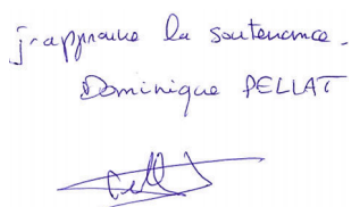 j'approuve la soutenance.
Dominique PELLAT